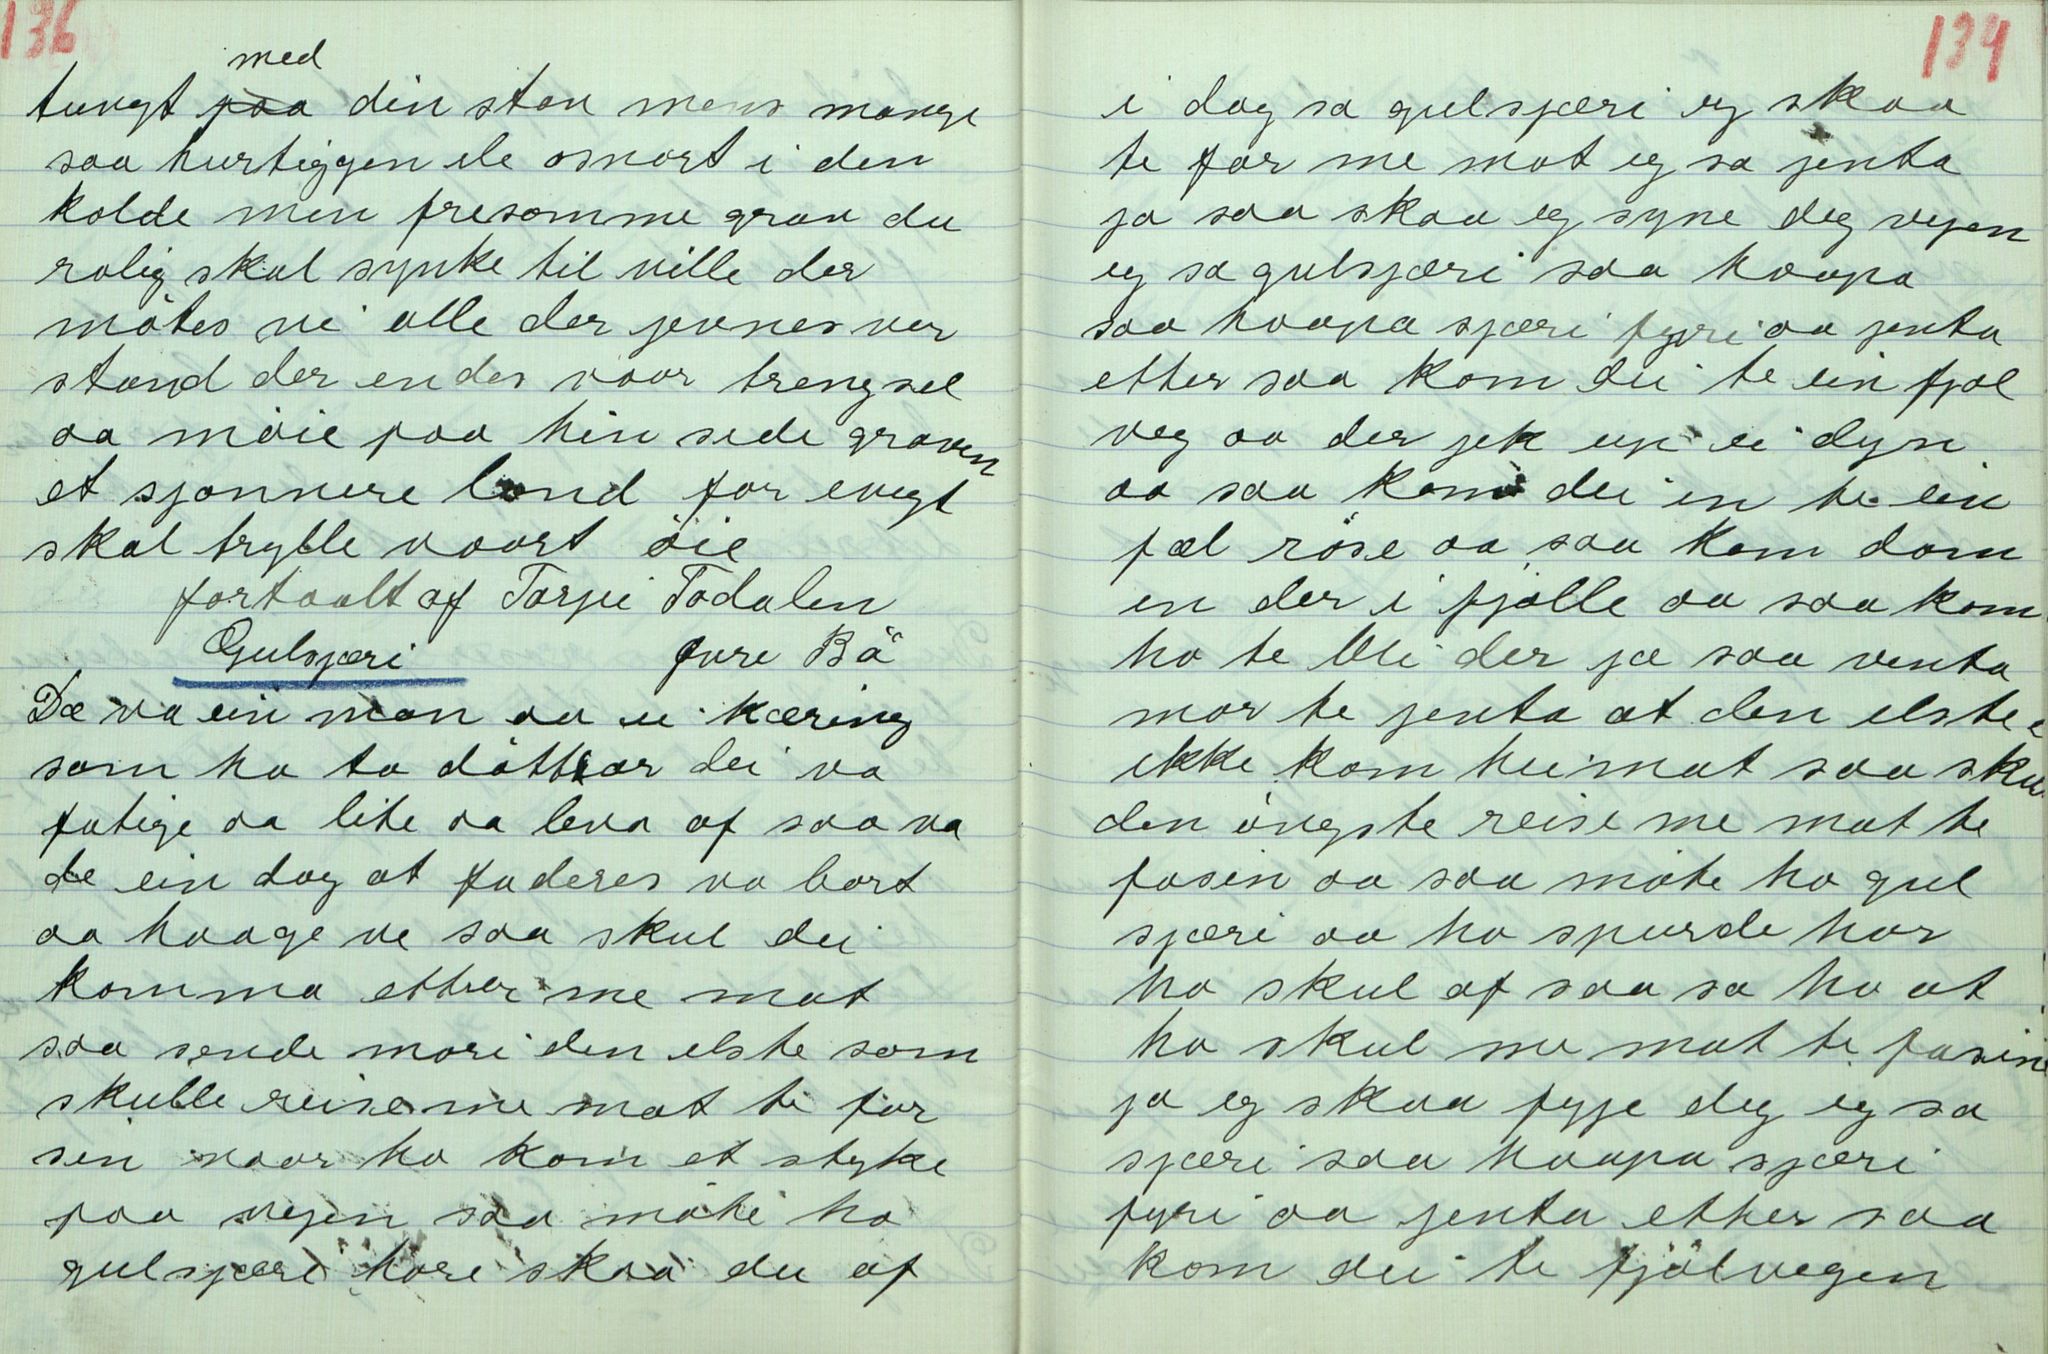 136
med
tungt paa din stav mens mange
saa hurtiggen ile osnart i den
kolde men fresomme grav du
rolig skal synke til ville der
mötes vi alle der jevnes ver
stand der endes voor trengsel
aa möie paa hin side graven
et sjønnere land for evegt
skal trylle voort öie
fortaalt af Torjei Todalen
Gulsjæri övre Bö
Dæ va ein man aa ei kæring
som ha to döttrar dei va
fatige aa lite aa leva af saa va
de ein dag at faderes va bort
aa haage ve saa skul dei
komma etter me mat
saa sende mori den elste som
skulle reise me mat te far
sin naar ho kom et styke
paa vejen saa möte ho
gulsjæri hore skaa du af
134
i dag sa gulsjæri eg skaa
te far me mat eg sa jenta
ja saa skaa eg syne deg vejen
eg sa gulsjæri saa haapa
saa haapa sjæri fyri aa jenta
etter saa kom dei te ein fjøl
veg aa der jek up ei dyn
aa saa kom dei in te ein
fæl röse aa saa kom dom
in der i fjølle aa saa kom
ho te bli der ja saa venta
mor te jenta at den elste
ikke kom heimat saa sku
den öngste reise me mat te
fasin aa saa möte ho gul
sjæri aa ho spurde hor
ho skul af saa sa ho at
ho skul me mat te fasine
ja eg skaa fyje deg eg sa
sjæri saa haapa sjæri
fyri aa jenta etter saa
kom dei te fjölvegen